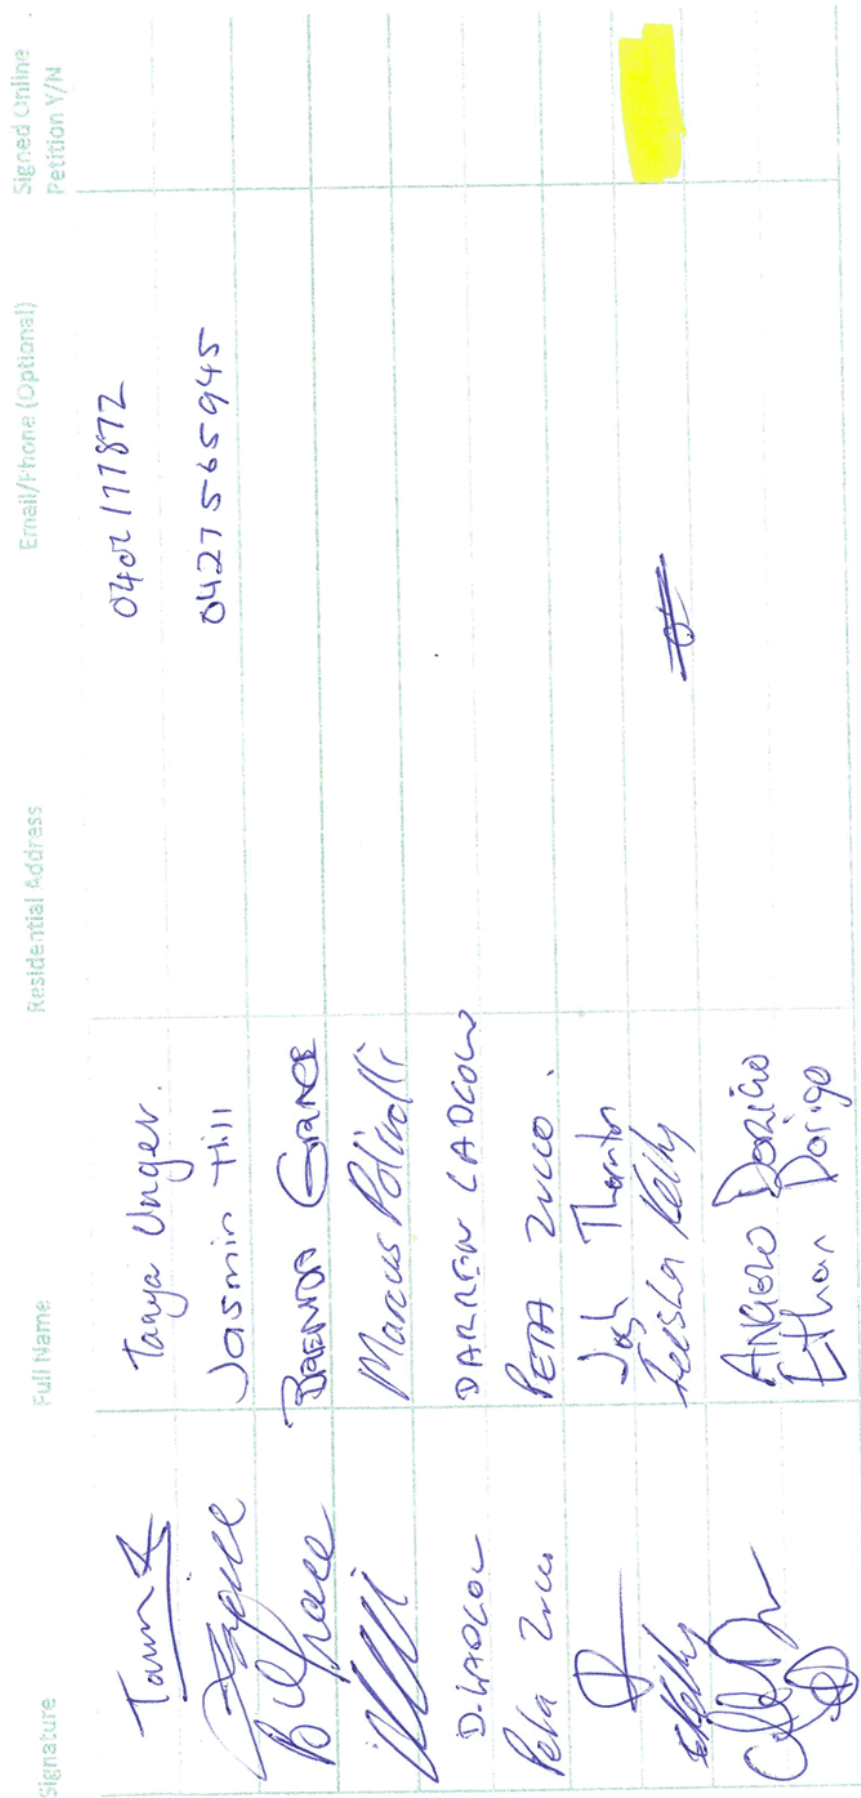 Signature Full Name Residential Address Email/Phone (Optional) Signed Online Petition Y/N
Tanya Unger. 0402177872
Jasmin Hill 0427565945
BRENDA GRACE
Marcus Polivalli
D. LADLOW DARREN LADLOW
Peta Zucco PETA ZUCCO.
Josh Thornton
EKelly Leesha Kelly
ANGELO DORIGO
Ethan Dorigo